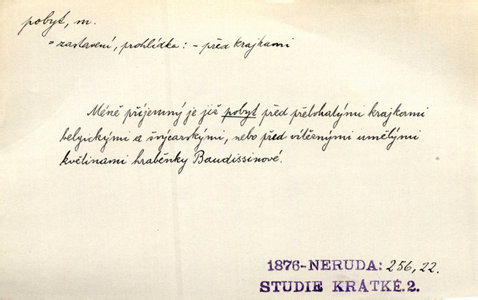 pobyt, m.
° zastavení, prohlídka: – před krajkami
Méně příjemný je již pobyt před přebohatými krajkami
belgickými a švýcarskými, nebo před vítěznými umělými
květinami hraběnky Baudissinové.
1876-NERUDA: 256, 22.
STUDIE KRÁTKÉ.2.